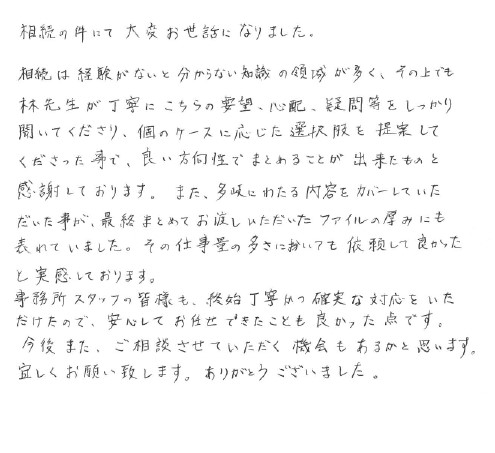 相続の件にて大変お世話になりました。
相続は経験がないと分からない知識の領域が多く、その上でも
林先生が丁寧にこちらの要望、心配、疑問等をしっかり
聞いてくださり、個のケースに応じた選択肢を提案して
くださった事で、良い方向性でまとめることが出来たものと
感謝しております。また、多岐にわたる内容をカバーしていた
だいた事が、最終まとめてお渡しいただいたファイルの厚みにも
表れていました。その仕事量の多さにおいても依頼して良かった
と実感しております。
事務所スタッフの皆様も、終始丁寧かつ確実な対応をいた
だけたので、安心してお任せできたことも良かった点です。
今後また、ご相談させていただく機会もあるかと思います。
宜しくお願い致します。ありがとうございました。